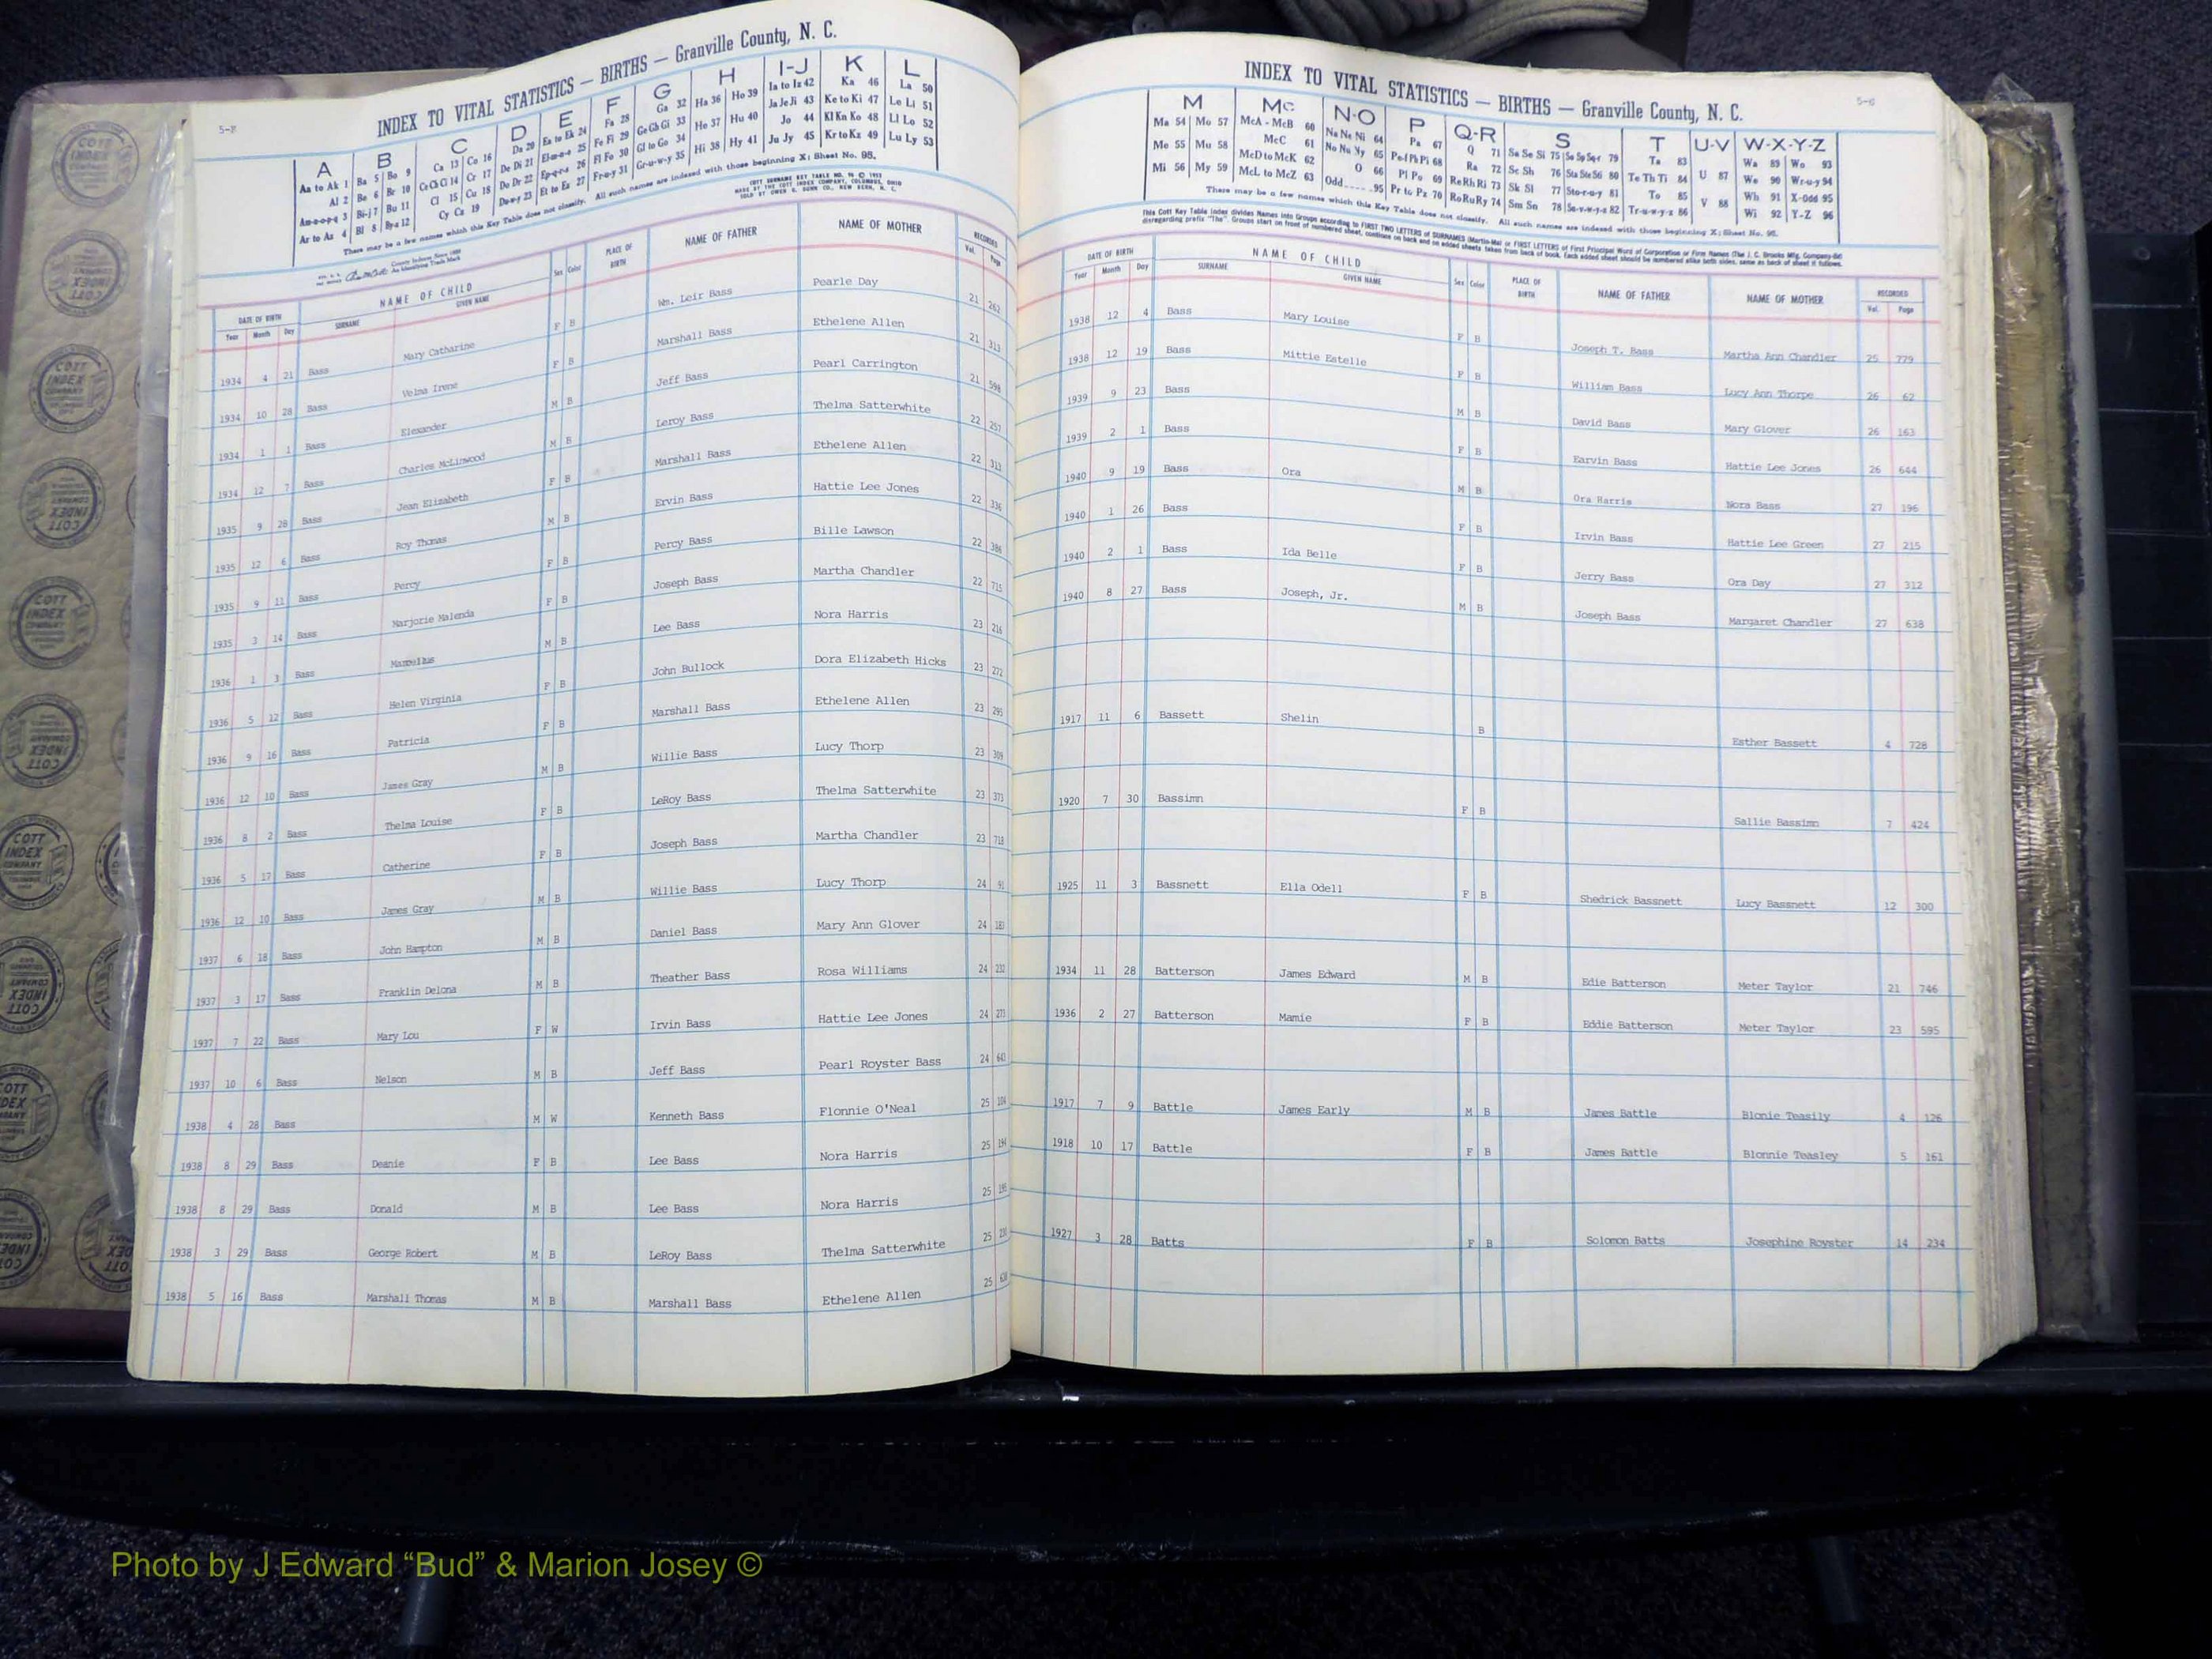 5-F
INDEX TO VITAL STATISTICS — BIRTHS — Granville County, N. C.
A B C D E F G H I-J K L
Aa to Ak 1 Ba 5 Bo 9 Ca 13 Co 16 Da 20 Ea to Ek 24 Fa 28 Ga 32 Ha 36 Ho 39 Ia to Iz 42 Ka 46 La 50
Al 2 Be 6 Br 10 Ce Ch Ci 14 Cr 17 De Di 21 El-m-n-o 25 Fe Fi 29 Ge Gh Gi 33 He 37 Hu 40 Ja Je Ji 43 Ke to Ki 47 Le Li 51
Am-n-o-p-q 3 Bi-j 7 Bu 11 Cl 15 Cu 18 Do Dr 22 Ep-q-r-s 26 Fl Fo 30 Gl to Go 34 Hi 38 Hy 41 Jo 44 Kl Kn Ko 48 Ll Lo 52
Ar to Az 4 Bl 8 By-z 12 Cy Cz 19 Du-w-y 23 Et to Ez 27 Fr-u-y 31 Gr-u-w-y 35 Ju Jy 45 Kr to Kz 49 Lu Ly 53
There may be a few names which this Key Table does not classify. All such names are indexed with those beginning X; Sheet No. 95.
COTT SURNAME KEY TABLE NO. 96 © 1952
MADE BY THE COTT INDEX COMPANY, COLUMBUS, OHIO
SOLD BY OWEN G. DUNN CO., NEW BERN, N. C.
County Indexes Since 1888
An Identifying Trade Mark
DATE OF BIRTH NAME OF CHILD Sex Color PLACE OF BIRTH NAME OF FATHER NAME OF MOTHER RECORDED
Year Month Day SURNAME GIVEN NAME Vol. Page
1934 4 21 Bass Mary Catharine F B Wm. Leir Bass Pearle Day 21 262
1934 10 28 Bass Velma Irene F B Marshall Bass Ethelene Allen 21 313
1934 1 1 Bass Elexander M B Jeff Bass Pearl Carrington 21 598
1934 12 7 Bass Charles McLinwood M B Leroy Bass Thelma Satterwhite 22 257
1935 9 28 Bass Jean Elizabeth F B Marshall Bass Ethelene Allen 22 313
1935 12 6 Bass Roy Thomas M B Ervin Bass Hattie Lee Jones 22 336
1935 9 11 Bass Percy F B Percy Bass Bille Lawson 22 386
1935 3 14 Bass Marjorie Malenda F B Joseph Bass Martha Chandler 22 715
1936 1 3 Bass Marcellus M B Lee Bass Nora Harris 23 216
1936 5 12 Bass Helen Virginia F B John Bullock Dora Elizabeth Hicks 23 272
1936 9 16 Bass Patricia F B Marshall Bass Ethelene Allen 23 295
1936 12 10 Bass James Gray M B Willie Bass Lucy Thorp 23 309
1936 8 2 Bass Thelma Louise F B LeRoy Bass Thelma Satterwhite 23 373
1936 5 17 Bass Catherine F B Joseph Bass Martha Chandler 23 718
1936 12 10 Bass James Gray M B Willie Bass Lucy Thorp 24 91
1937 6 18 Bass John Hampton M B Daniel Bass Mary Ann Glover 24 183
1937 3 17 Bass Franklin Delona M B Theather Bass Rosa Williams 24 232
1937 7 22 Bass Mary Lou F W Irvin Bass Hattie Lee Jones 24 273
1937 10 6 Bass Nelson M B Jeff Bass Pearl Royster Bass 24 643
1938 4 28 Bass M W Kenneth Bass Flonnie O'Neal 25 104
1938 8 29 Bass Deanie F B Lee Bass Nora Harris 25 194
1938 8 29 Bass Donald M B Lee Bass Nora Harris 25 195
1938 3 29 Bass George Robert M B LeRoy Bass Thelma Satterwhite 25
1938 5 16 Bass Marshall Thomas M B Marshall Bass Ethelene Allen 25
INDEX TO VITAL STATISTICS — BIRTHS — Granville County, N. C.
M Mc N-O P Q-R S T U-V W-X-Y-Z
Ma 54 Mo 57 McA - McB 60 Na Ne Ni 64 Pa 67 Q 71 Sa Se Si 75 So Sp Sq-r 79 Ta 83 U 87 Wa 89 Wo 93
Me 55 Mu 58 McC 61 No Nu Ny 65 Pe-f Ph Pi 68 Ra 72 Sc Sh 76 Sta Ste Sti 80 Te Th Ti 84 We 90 Wr-u-y 94
Mi 56 My 59 McD to McK 62 O 66 Pl Po 69 Re Rh Ri 73 Sk Sl 77 Sto-r-u-y 81 To 85 V 88 Wh 91 X-Odd 95
McL to McZ 63 Odd 95 Pr to Pz 70 Ro Ru Ry 74 Sm Sn 78 Su-v-w-y-z 82 Tr-u-w-y-z 86 Wi 92 Y-Z 96
There may be a few names which this Key Table does not classify. All such names are indexed with those beginning X; Sheet No. 95.
This Cott Key Table Index divides Names into Groups according to FIRST TWO LETTERS of SURNAMES (Martin-Ma) or FIRST LETTERS of First Principal Word of Corporation or Firm Names (The J. C. Brooks Mfg. Company-Br)
disregarding prefix "The". Groups start on front of numbered sheet, continue on back and on added sheets taken from back of book. Each added sheet should be numbered alike both sides, same as back of sheet it follows.
DATE OF BIRTH NAME OF CHILD Sex Color PLACE OF BIRTH NAME OF FATHER NAME OF MOTHER RECORDED
Year Month Day SURNAME GIVEN NAME Vol. Page
1938 12 4 Bass Mary Louise F B Joseph T. Bass Martha Ann Chandler 25 779
1938 12 19 Bass Mittie Estelle F B William Bass Lucy Ann Thorpe 26 62
1939 9 23 Bass M B David Bass Mary Glover 26 163
1939 2 1 Bass F B Earvin Bass Hattie Lee Jones 26 644
1940 9 19 Bass Ora M B Ora Harris Nora Bass 27 196
1940 1 26 Bass F B Irvin Bass Hattie Lee Green 27 215
1940 2 1 Bass Ida Belle F B Jerry Bass Ora Day 27 312
1940 8 27 Bass Joseph, Jr. M B Joseph Bass Margaret Chandler 27 638
1917 11 6 Bassett Shelin B Esther Bassett 4 728
1920 7 30 Bassimn F B Sallie Bassimn 7 424
1925 11 3 Bassnett Ella Odell F B Shedrick Bassnett Lucy Bassnett 12 300
1934 11 28 Batterson James Edward M B Edie Batterson Meter Taylor 21 746
1936 2 27 Batterson Mamie F B Eddie Batterson Meter Taylor 23 595
1917 7 9 Battle James Early M B James Battle Blonie Teasily 4 126
1918 10 17 Battle F B James Battle Blonnie Teasley 5 161
1927 3 28 Batts F B Solomon Batts Josephine Royster 14 234
Photo by J Edward “Bud” & Marion Josey ©